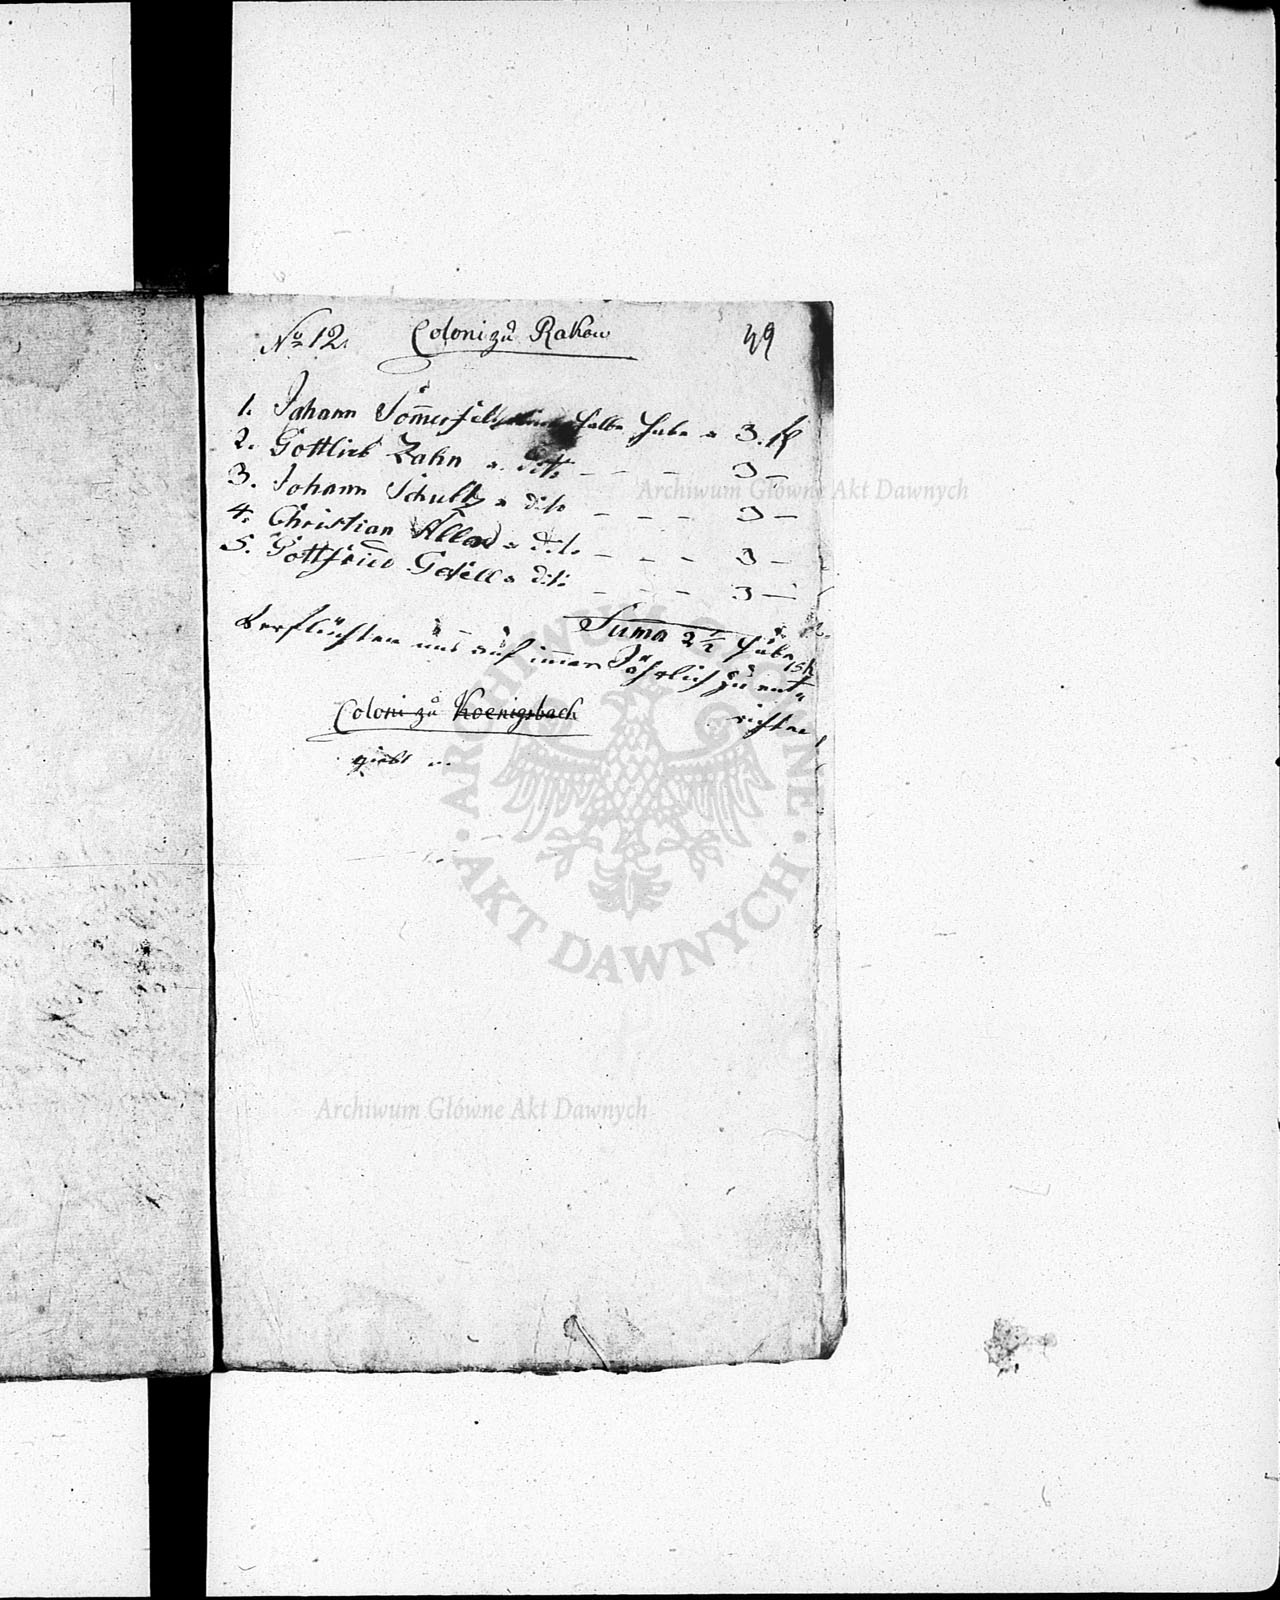 No 12. Coloni zu Rakow 49
1. Johann Somerfeld eine halbe Hube a 3. f
2. Gottlieb Zahn a dito - - - 3 -
3. Johann Schultz a dito - - - 3 -
4. Christian a dito - - - 3 -
5. Gottfried Gesell a dito - - - 3 -
Suma 2 1/2 Hube 15 f
Verflichten uns auf immer Jährlich zu ent=
richten
Coloni zu Koenigsbach
giebt
Archiwum Główne Akt Dawnych
ARCHIWUM GŁÓWNE · AKT DAWNYCH ·
Archiwum Główne Akt Dawnych